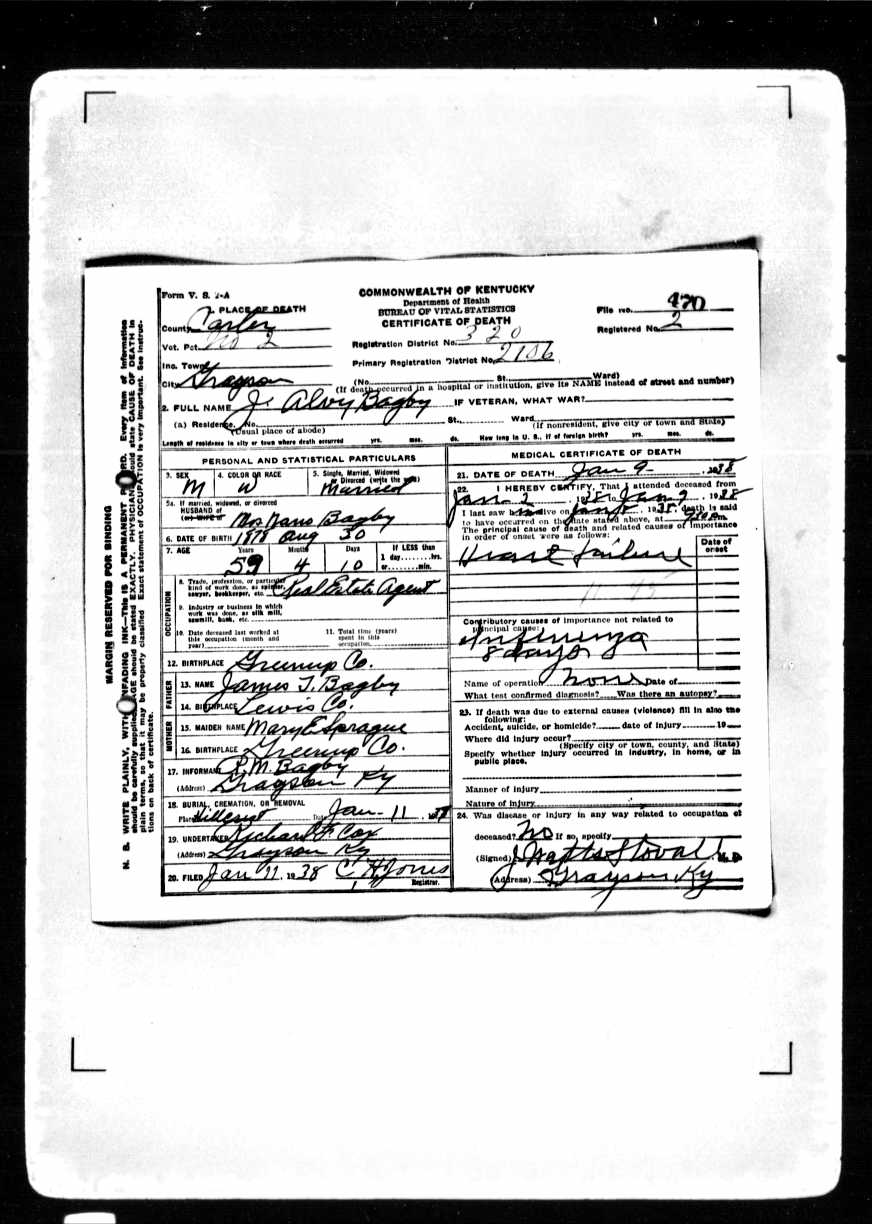 MARGIN RESERVED FOR BINDING
N. B. WRITE PLAINLY, WITH UNFADING INK—This IS A PERMANENT RECORD. Every item of information
should be carefully supplied. AGE should be stated EXACTLY. PHYSICIANS should state CAUSE OF DEATH in
plain terms, so that it may be properly classified. Exact statement of OCCUPATION is very important. See instruc-
tions on back of certificate.
Form V. S. 1-A
COMMONWEALTH OF KENTUCKY
Department of Health
BUREAU OF VITAL STATISTICS
CERTIFICATE OF DEATH
File No. 470
Registered No. 2
1. PLACE OF DEATH
County Carter
Vot. Pct. No 2
Registration District No. 320
Inc. Town
Primary Registration District No. 2106
City Grayson
(No. St. Ward)
(If death occurred in a hospital or institution, give its NAME instead of street and number)
2. FULL NAME J. Alvy Bagby IF VETERAN, WHAT WAR?
(a) Residence, No. St., Ward
(Usual place of abode) (If nonresident, give city or town and State)
Length of residence in city or town where death occurred yrs. mos. ds. How long in U. S., if of foreign birth? yrs. mos. ds.
PERSONAL AND STATISTICAL PARTICULARS
3. SEX M
4. COLOR OR RACE W
5. Single, Married, Widowed or Divorced (write the word) Married
5a. If married, widowed, or divorced
HUSBAND of
(or) WIFE of Mrs Nano Bagby
6. DATE OF BIRTH 1878 Aug 30
7. AGE Years 59 Months 4 Days 10 If LESS than 1 day hrs. or min.
OCCUPATION
8. Trade, profession, or particular kind of work done, as spinner, sawyer, bookkeeper, etc. Real Estate Agent
9. Industry or business in which work was done, as silk mill, sawmill, bank, etc.
10. Date deceased last worked at this occupation (month and year)
11. Total time (years) spent in this occupation
12. BIRTHPLACE Greenup Co.
FATHER
13. NAME James T. Bagby
14. BIRTHPLACE Lewis Co.
MOTHER
15. MAIDEN NAME Mary E Sprague
16. BIRTHPLACE Greenup Co.
17. INFORMANT R. M. Bagby
(Address) Grayson Ky
18. BURIAL, CREMATION, OR REMOVAL
Place Hillcrest Date Jan. 11, 1938
19. UNDERTAKER Richard F Cox
(Address) Grayson Ky
20. FILED Jan 11, 1938 C H Jones
Registrar.
MEDICAL CERTIFICATE OF DEATH
21. DATE OF DEATH Jan 9- , 1938
22. I HEREBY CERTIFY, That I attended deceased from
Jan - 2, 1938 to Jan 9, 1938
I last saw him alive on Jan 8, 1938, death is said
to have occurred on the date stated above, at 9:30 P.m.
The principal cause of death and related causes of importance
in order of onset were as follows:
Date of onset
Heart failure
Contributory causes of importance not related to
principal cause:
Influenza
8 days
Name of operation None Date of
What test confirmed diagnosis? Was there an autopsy?
23. If death was due to external causes (violence) fill in also the
following:
Accident, suicide, or homicide? date of injury 19
Where did injury occur?
(Specify city or town, county, and State)
Specify whether injury occurred in industry, in home, or in
public place.
Manner of injury
Nature of injury
24. Was disease or injury in any way related to occupation of
deceased? No If so, specify
(Signed) J Watts Stovall M. D
(Address) Grayson Ky